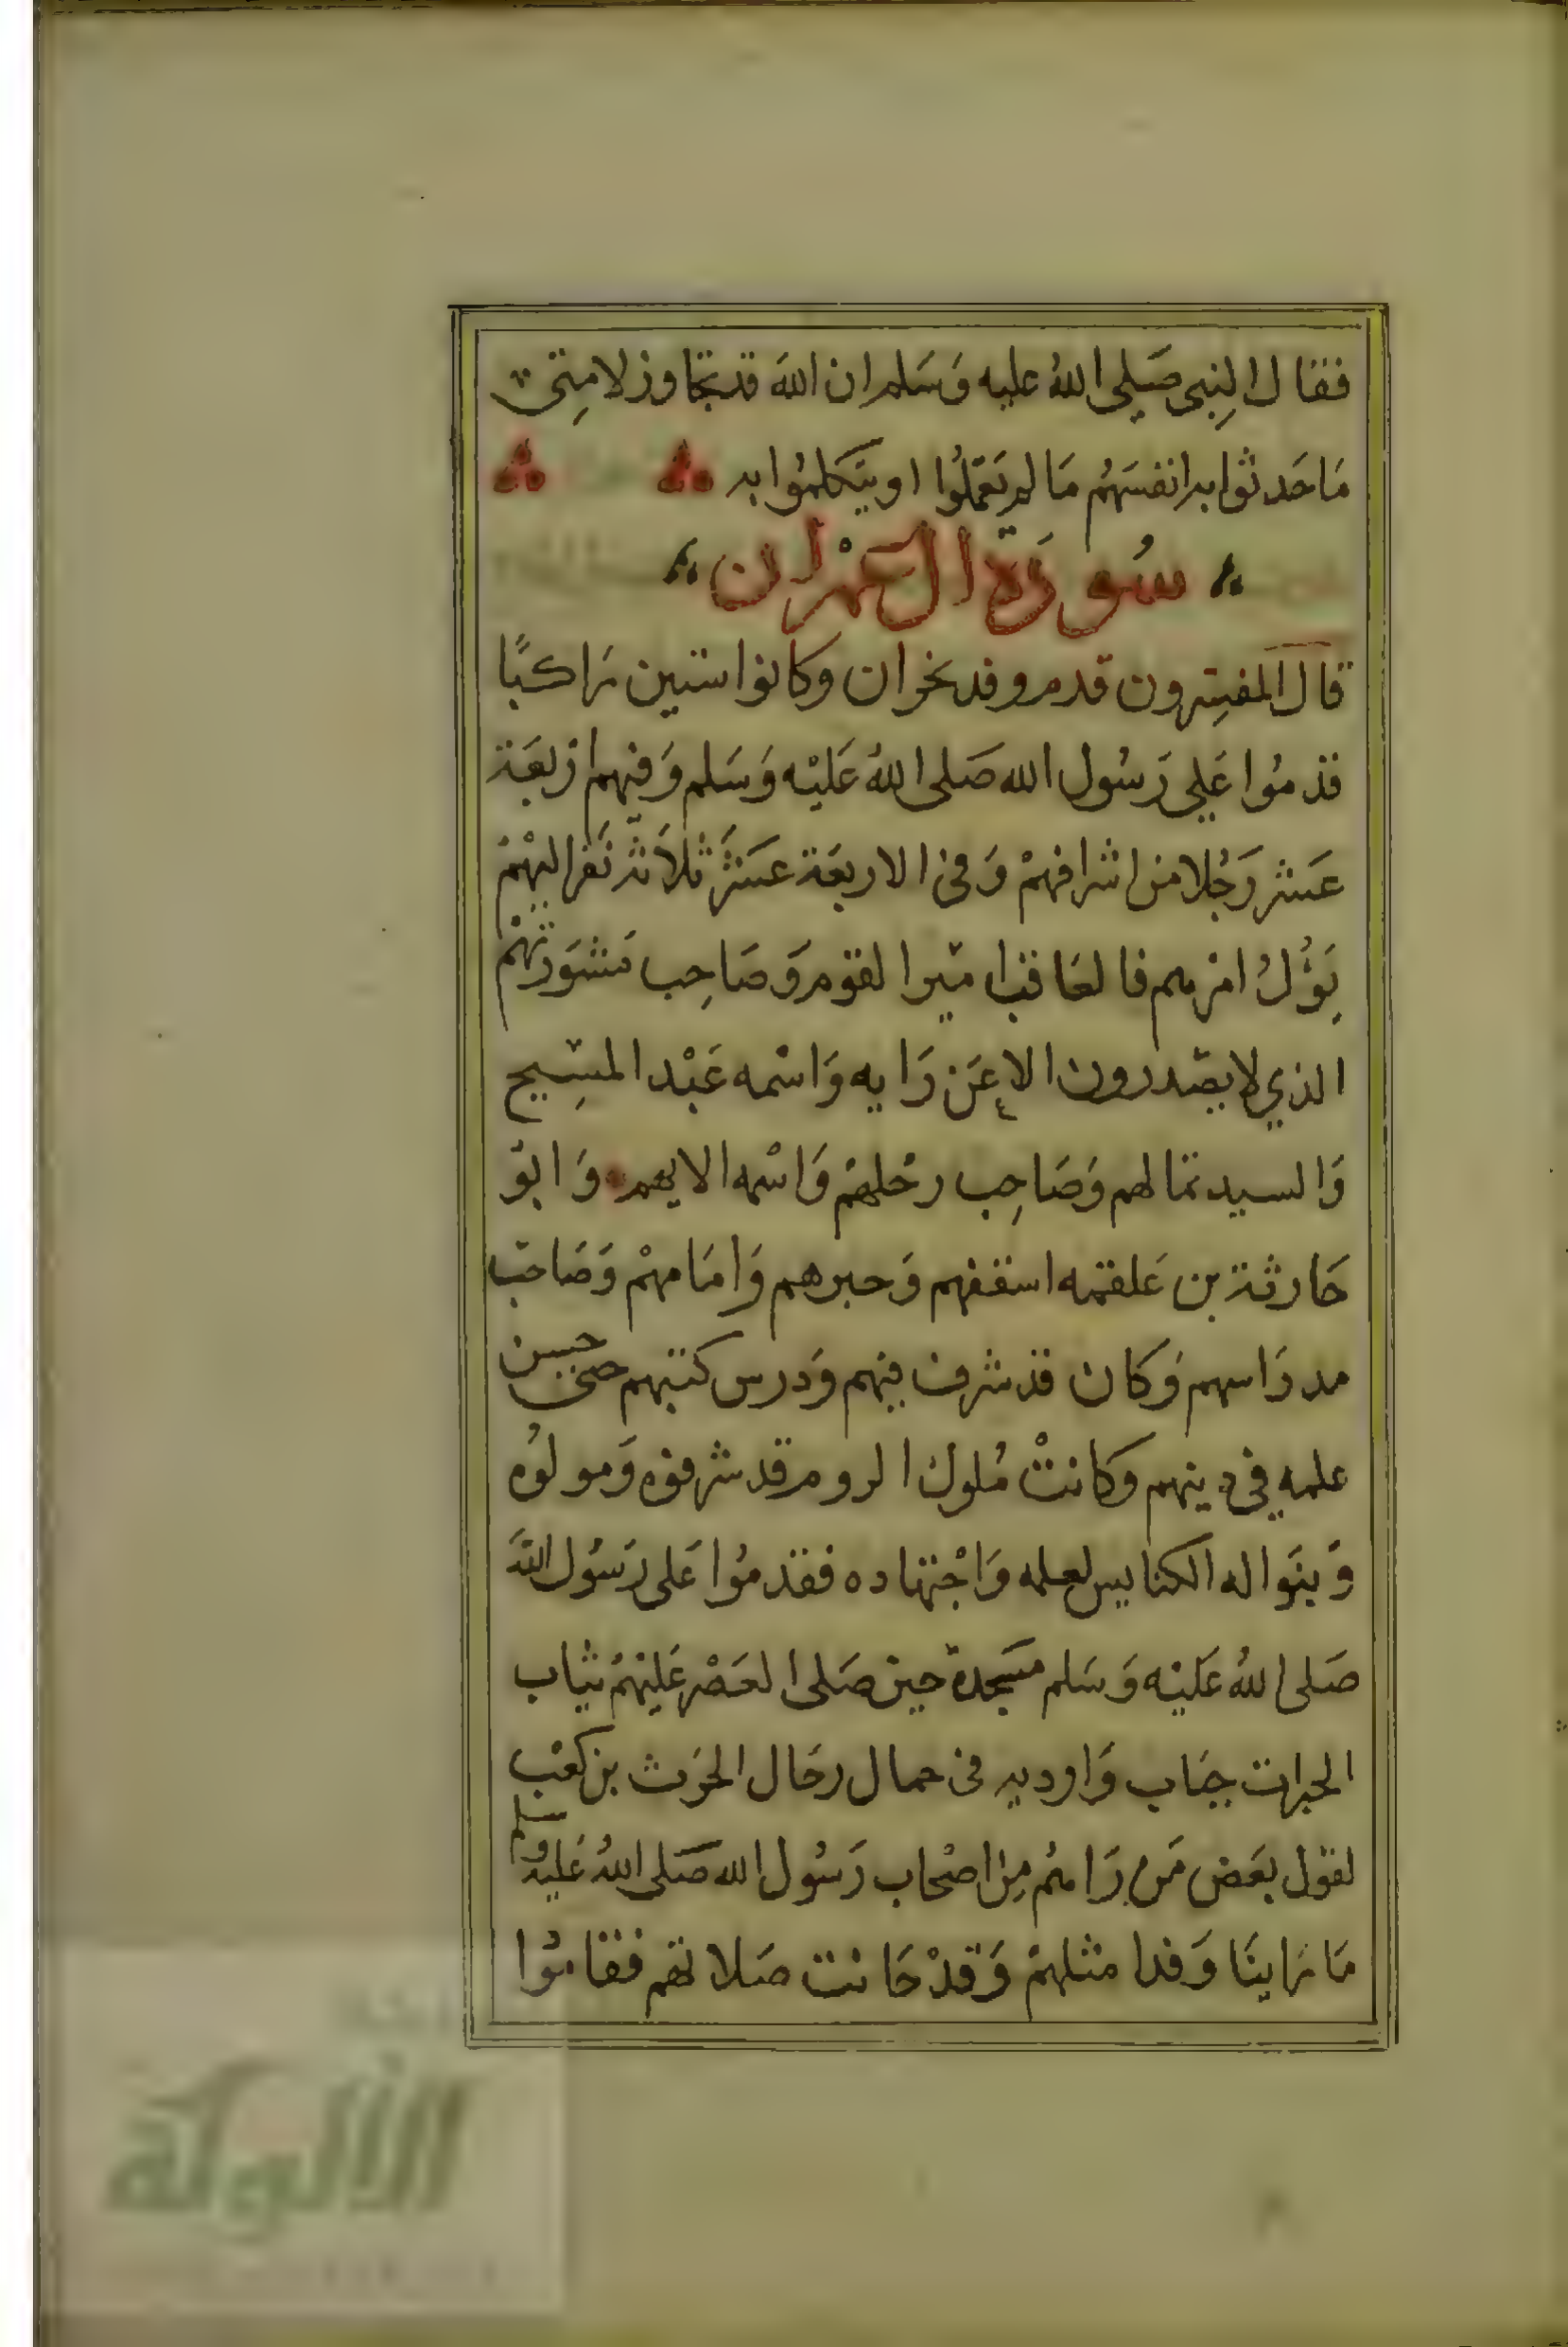 فقال النبى صَلى اللهُ عليه وَسَلم ان اللهَ قد تجاوز لامتى
مَا حَدثوا به انفسَهُم مَا لم تعملُوا او يتكلمُوا به
سُورَة ال عمْران
قال المفسِرون قدم وفد نجران وكانوا ستين رَاكبًا
قدمُوا عَلى رَسُول الله صَلى اللهُ عَليْه وَسَلم وَفيهم ارْبعَة
عَشر رَجُلا من اشرافهمْ وَفى الاربعَة عَشَر ثلاَثة نَفر اليْهمْ
يَؤُلُ امْرهم فالعَاقب اميرا لقوم وَصَاحِب مَشوَرتهْم
الذي لا يصدرون الا عَن رَايه وَاسْمه عَبْد المسِيح
وَالسيد ثمالهم وَصَاحِب رحْلهمْ وَاسْمه الايهم وَابوُ
حَارثة بن عَلقمه اسقفهم وَحبرهم وَامَامهمْ وَصَاحب
مدرَاسهم وَكان قد شرف فيهم وَدرس كتبهم حتى حسن
علمه في دينهم وكانتْ مُلوك الروم قد شرفوه وَمولوُه
وَبنَوا له الكنايس لعلمه وَاجْتهاده فقدمُوا عَلى رَسُول الله
صَلى اللهُ عَليْه وَسَلم مسَجدهَ حين صَلى العَصْر عَليْهمْ ثيَاب
الحبرات جبَاب وَاوديه فى جمال رجَال الحَرث بن كعْب
لقول بعَض مَن رَاهُم مِن اصْحاب رَسُول الله صَلى اللهُ عَليْه وسلم
مَا رَاينَا وَفدا مثلهمْ وَقدْ حَانت صَلاتهم فقامُوا
الألوكة